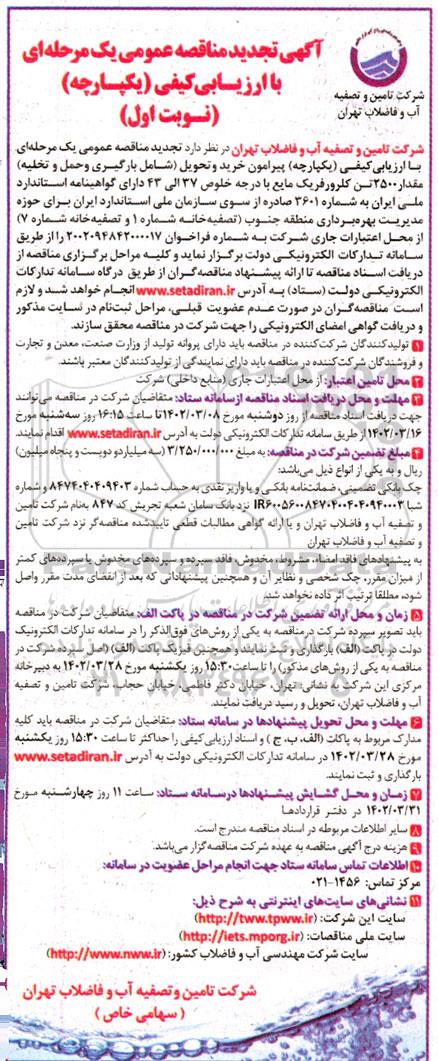 آگهی تجدید مناقصه عمومی یک مرحله‌ای
با ارزیابی کیفی (یکپارچه)
(نوبت اول)
شرکت تامین و تصفیه
آب و فاضلاب تهران
شرکت تامین و تصفیه آب و فاضلاب تهران در نظر دارد تجدید مناقصه عمومی یک مرحله‌ای
با ارزیابی کیفی (یکپارچه) پیرامون خرید و تحویل (شامل بارگیری وحمل و تخلیه)
مقدار ۲۵۰۰ تن کلرورفریک مایع با درجه خلوص ۳۷ الی ۴۳ دارای گواهینامه استاندارد
ملی ایران به شماره ۳۶۰۱ صادره از سوی سازمان ملی استاندارد ایران برای حوزه
مدیریت بهره‌برداری منطقه جنوب (تصفیه‌خانه شماره ۱ و تصفیه‌خانه شماره ۷)
از محل اعتبارات جاری شرکت به شماره فراخوان ۲۰۰۲۰۹۴۸۴۲۰۰۰۰۱۷ را از طریق
سامانه تدارکات الکترونیکی دولت برگزار نماید و کلیه مراحل برگزاری مناقصه از
دریافت اسناد مناقصه تا ارائه پیشنهاد مناقصه‌گران از طریق درگاه سامانه تدارکات
الکترونیکی دولت (ستاد) به آدرس www.setadiran.ir انجام خواهد شد و لازم
است مناقصه‌گران در صورت عدم عضویت قبلی، مراحل ثبت‌نام در سایت مذکور
و دریافت گواهی امضای الکترونیکی را جهت شرکت در مناقصه محقق سازند.
۱ تولیدکنندگان شرکت‌کننده در مناقصه باید دارای پروانه تولید از وزارت صنعت، معدن و تجارت
و فروشندگان شرکت‌کننده در مناقصه باید دارای نمایندگی از تولیدکنندگان معتبر باشند.
۲ محل تامین اعتبار: از محل اعتبارات جاری (منابع داخلی) شرکت
۳ مهلت و محل دریافت اسناد مناقصه از سامانه ستاد: متقاضیان شرکت در مناقصه می‌توانند
جهت دریافت اسناد مناقصه از روز دوشنبه مورخ ۱۴۰۲/۰۳/۰۸ تا ساعت ۱۶:۱۵ روز سه‌شنبه مورخ
۱۴۰۲/۰۳/۱۶ از طریق سامانه تدارکات الکترونیکی دولت به آدرس www.setadiran.ir اقدام نمایند.
۴ مبلغ تضمین شرکت در مناقصه: به مبلغ ۳/۲۵۰/۰۰۰/۰۰۰ (سه میلیارد و دویست و پنجاه میلیون)
ریال و به یکی از انواع ذیل می‌باشد:
چک بانکی تضمینی، ضمانت‌نامه بانکی و یا واریز نقدی به حساب شماره ۸۴۷۴۰۴۰۴۰۹۴۰۳ و شماره
شبا نزد بانک سامان شعبه تجریش کد ۸۴۷ به‌نام شرکت تامین
و تصفیه آب و فاضلاب تهران و یا ارائه گواهی مطالبات قطعی تاییدشده مناقصه‌گر نزد شرکت تامین
و تصفیه آب و فاضلاب تهران
به پیشنهادهای فاقد امضاء، مشروط، مخدوش، فاقد سپرده و سپرده‌های مخدوش یا سپرده‌های کمتر
از میزان مقرر، چک شخصی و نظایر آن و همچنین پیشنهاداتی که بعد از انقضای مدت مقرر واصل
شود، مطلقا ترتیب اثر داده نخواهد شد.
۵ زمان و محل ارائه تضمین شرکت در مناقصه در پاکت الف: متقاضیان شرکت در مناقصه
باید تصویر سپرده شرکت در مناقصه به یکی از روش‌های فوق‌الذکر را در سامانه تدارکات الکترونیک
دولت در پاکت (الف) بارگذاری و ثبت نمایند و همچنین فیزیک پاکت (الف) (اصل سپرده شرکت در
مناقصه به یکی از روش‌های مذکور) را تا ساعت ۱۵:۳۰ روز یکشنبه مورخ ۱۴۰۲/۰۳/۲۸ به دبیرخانه
مرکزی این شرکت به نشانی: تهران، خیابان دکتر فاطمی، خیابان حجاب، شرکت تامین و تصفیه
آب و فاضلاب تهران، تحویل و رسید دریافت نمایند.
۶ مهلت و محل تحویل پیشنهادها در سامانه ستاد: متقاضیان شرکت در مناقصه باید کلیه
مدارک مربوط به پاکات (الف، ب، ج) و اسناد ارزیابی کیفی را حداکثر تا ساعت ۱۵:۳۰ روز یکشنبه
مورخ ۱۴۰۲/۰۳/۲۸ در سامانه تدارکات الکترونیکی دولت به آدرس www.setadiran.ir
بارگذاری و ثبت نمایند.
۷ زمان و محل گشایش پیشنهادها در سامانه ستاد: ساعت ۱۱ روز چهارشنبه مورخ
۱۴۰۲/۰۳/۳۱ در دفتر قراردادها
۸ سایر اطلاعات مربوطه در اسناد مناقصه مندرج است.
۹ هزینه درج آگهی مناقصه به عهده شرکت مناقصه‌گزار می‌باشد.
۱۰ اطلاعات تماس سامانه ستاد جهت انجام مراحل عضویت در سامانه:
مرکز تماس: ۱۴۵۶-۰۲۱
۱۱ نشانی‌های سایت‌های اینترنتی به شرح ذیل:
سایت این شرکت: (http://tww.tpww.ir)
سایت ملی مناقصات: (http://iets.mporg.ir)
سایت شرکت مهندسی آب و فاضلاب کشور: (http://www.nww.ir)
شرکت تامین و تصفیه آب و فاضلاب تهران
(سهامی خاص)